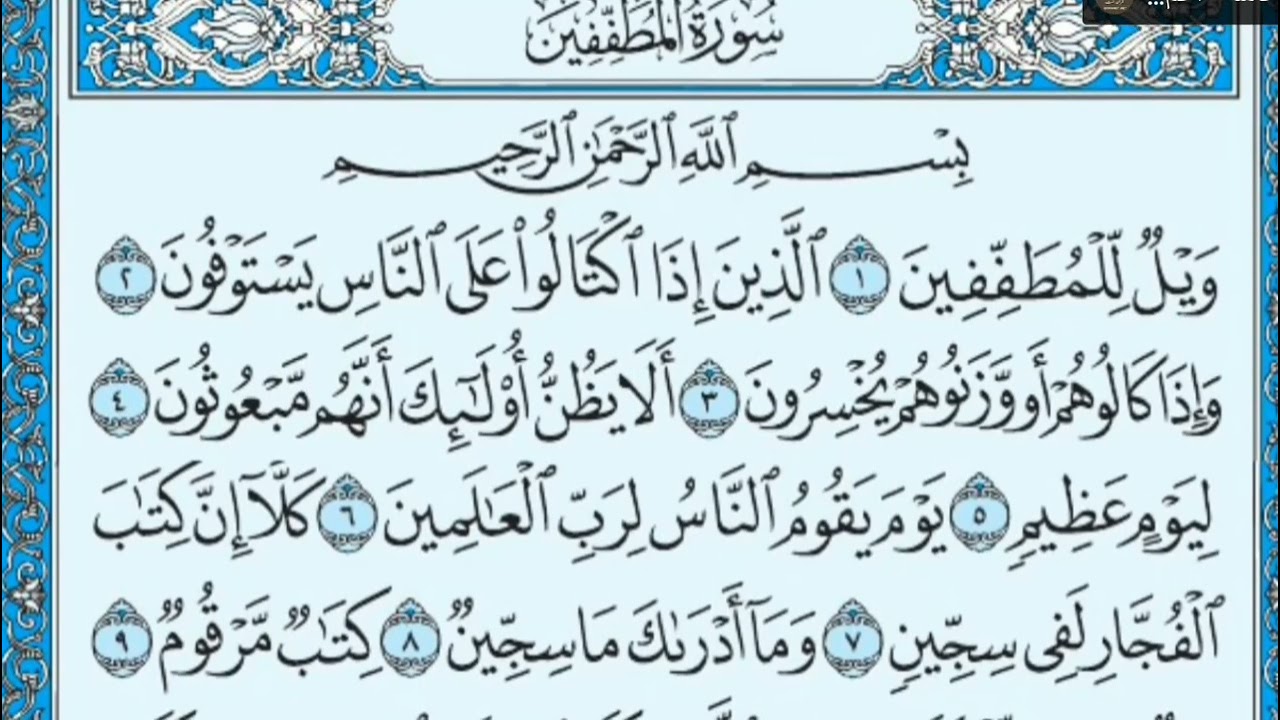 سُورَةُ الْمُطَفِّفِينَ
بِسْمِ ٱللَّهِ ٱلرَّحْمَٰنِ ٱلرَّحِيمِ
وَيْلٌ لِّلْمُطَفِّفِينَ ١ ٱلَّذِينَ إِذَا ٱكْتَالُوا۟ عَلَى ٱلنَّاسِ يَسْتَوْفُونَ ٢
وَإِذَا كَالُوهُمْ أَو وَّزَنُوهُمْ يُخْسِرُونَ ٣ أَلَا يَظُنُّ أُو۟لَٰٓئِكَ أَنَّهُم مَّبْعُوثُونَ ٤
لِيَوْمٍ عَظِيمٍ ٥ يَوْمَ يَقُومُ ٱلنَّاسُ لِرَبِّ ٱلْعَٰلَمِينَ ٦ كَلَّآ إِنَّ كِتَٰبَ
ٱلْفُجَّارِ لَفِى سِجِّينٍ ٧ وَمَآ أَدْرَىٰكَ مَا سِجِّينٌ ٨ كِتَٰبٌ مَّرْقُومٌ ٩